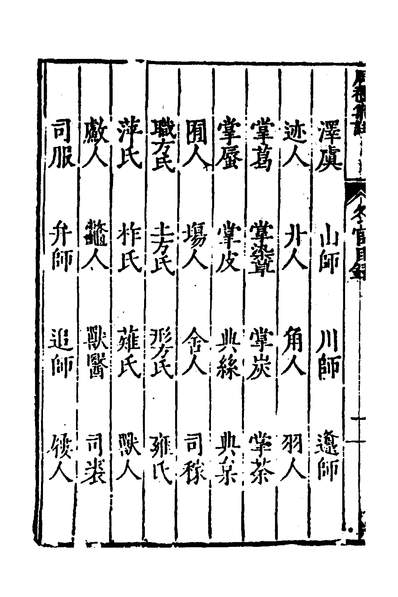 冬官目錄
澤虞 山師 川師 邍師
迹人 廾人 角人 羽人
掌葛 掌染草 掌炭 掌荼
掌蜃 掌皮 典絲 典枲
囿人 場人 舍人 司稼
職方氏 土方氏 形方氏 雍氏
萍氏 柞氏 薙氏 獸人
䱷人 鼈人 獸醫 司裘
司服 弁師 追師 屨人